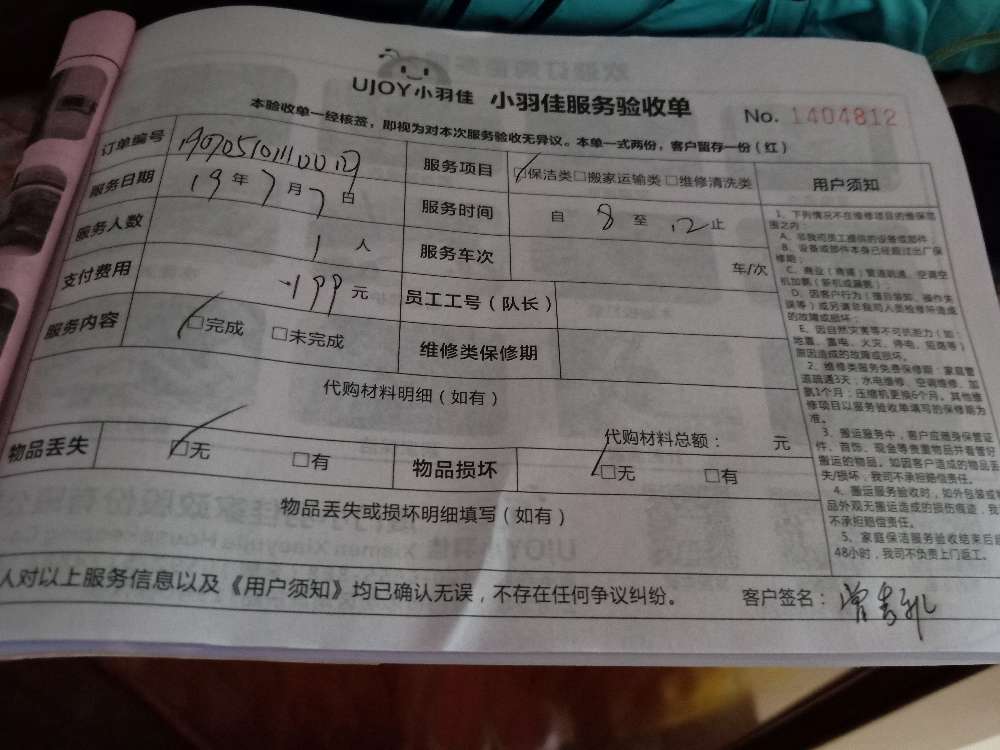 UJOY小羽佳 小羽佳服务验收单
No. 1404812
本验收单一经核签，即视为对本次服务验收无异议。本单一式两份，客户留存一份（红）
订单编号
服务项目 □保洁类□搬家运输类 □维修清洗类
用户须知
服务日期 19年7月7日
服务时间 自 8 至 12 止
服务人数 1人
服务车次 车/次
支付费用 199元
员工工号（队长）
服务内容 □完成 □未完成
维修类保修期
代购材料明细（如有）
代购材料总额： 元
物品丢失 □无 □有
物品损坏 □无 □有
物品丢失或损坏明细填写（如有）
1、下列情况不在维修项目的维保范
围之内：
A、非我司员工提供的设备或部件；
B、设备或部件本身已经超过出厂保
修期；
C、商业（商铺）管道疏通、空调空
机加氨（新机或漏氨）；
D、因客户行为（擅自装卸、操作失
误等）或另请非我司人员检修所造成
的故障或损坏；
E、因自然灾害等不可抗拒力（如：
地震、雷电、火灾、停电、短路等）
原因造成的故障或损坏。
2、维修类服务免费保修期：家庭管
道疏通3天，水电维修、空调维修、加
氨1个月；压缩机更换6个月。其他维
修项目以服务验收单填写的保修期为
准。
3、搬运服务中，客户应随身保管证
件、首饰、现金等贵重物品并看管好
搬运的物品。如因客户造成的物品丢
失/损坏，我司不承担赔偿责任。
4、搬运服务验收时，如外包装或物
品外观无搬运造成的损伤痕迹，我
不承担赔偿责任。
5、家庭保洁服务验收结束后超
48小时，我司不负责上门返工。
人对以上服务信息以及《用户须知》均已确认无误，不存在任何争议纠纷。
客户签名：